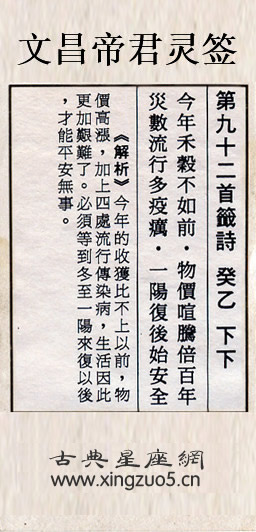 文昌帝君灵签
第九十二首籤詩 癸乙 下下
今年禾穀不如前．物價喧騰倍百年
災數流行多疫癘．一陽復後始安全
《解析》今年的收獲比不上以前，物
價高漲，加上四處流行傳染病，生活因此
更加艱難了。必須等到冬至一陽來復以後
，才能平安無事。
古典星座網
www.xingzuo5.cn